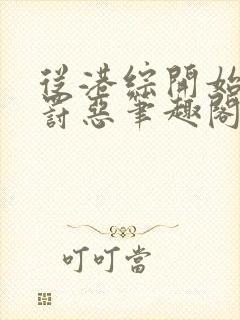 從港綜開始
討惡筆趣閣
叮叮當